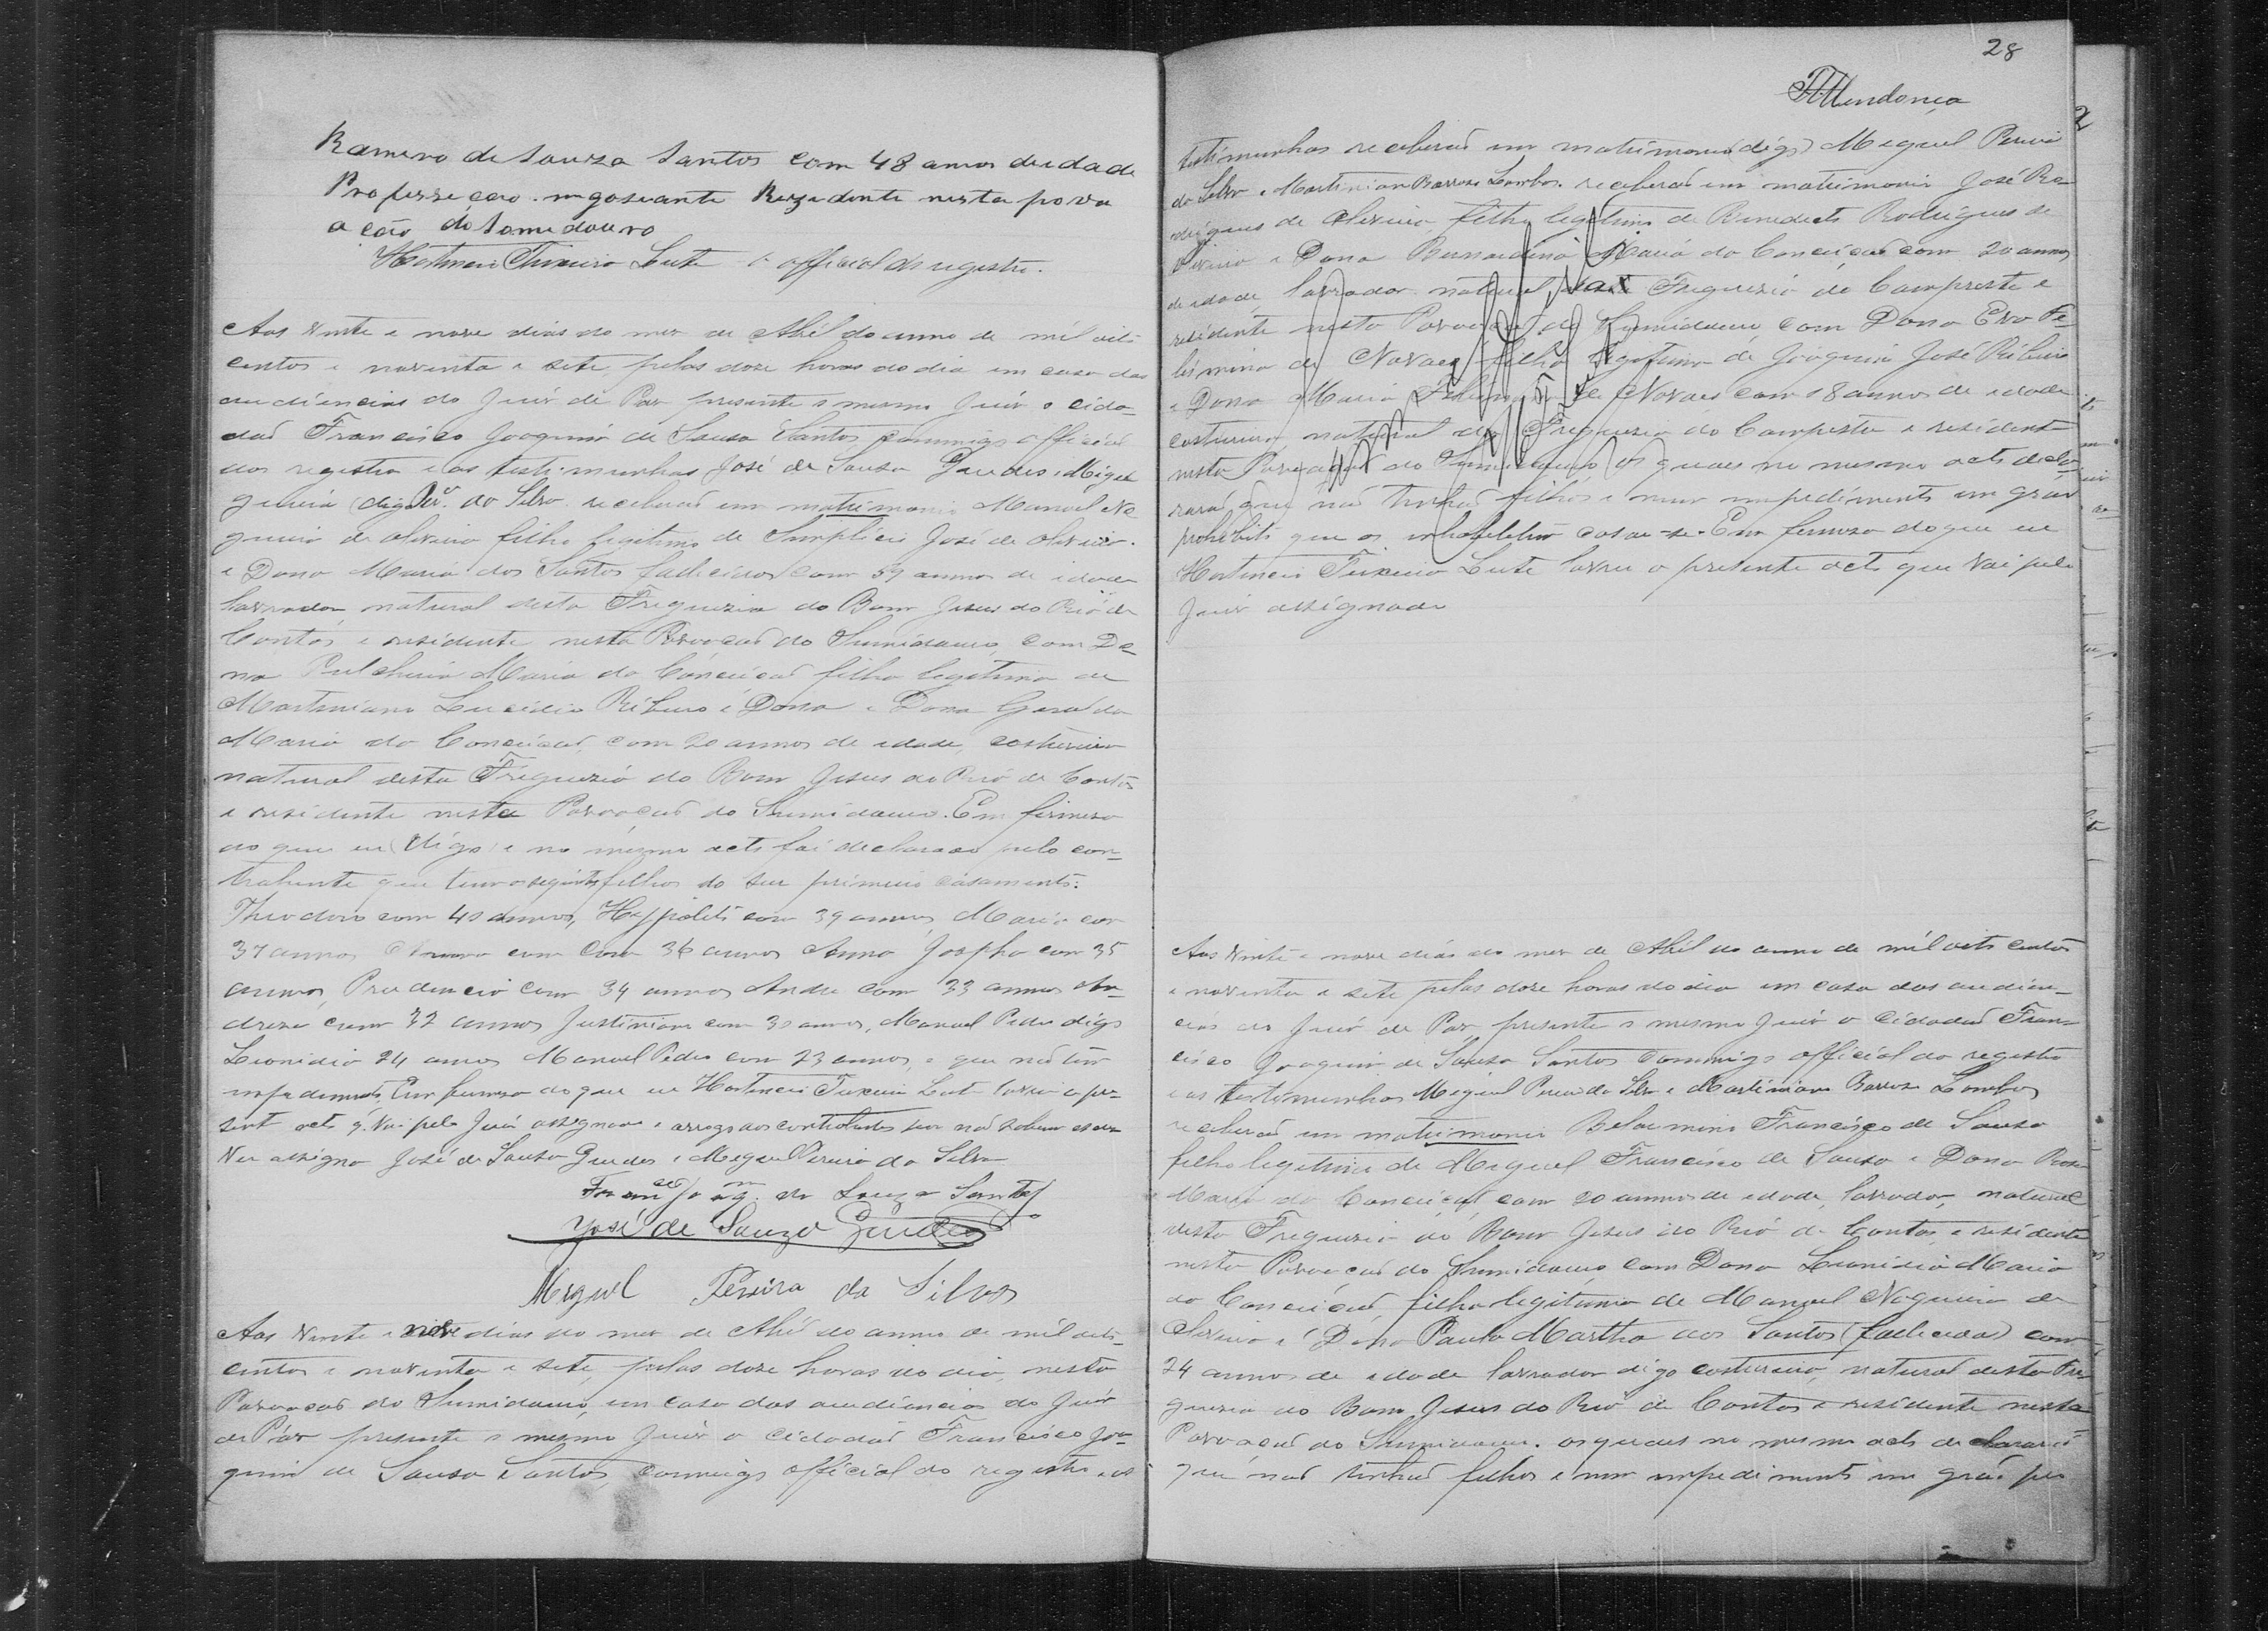 Ramiro de Souza Santos com 48 annos deidade
Professecão. ngoseante Rezedente nesta povu
a ção do Somedouro
Hortencio Teixeira Leite o official do registro.
Aos vinte e nove dias do mez de Abril do anno de mil oito
centos e noventa e sete, pelas doze horas do dia em casa das
audiencias do Juiz de Paz presente o mesmo Juiz o cida-
dão Francisco Joaquim de Sousa Santos commigo official
dos registro e as testimunhas José de Sousa Guedes e Miguel
digo Per.ª da Silva receberão em matrimonio Manoel No
gueira de Oliveira filho legitimo de Simplicio José de Oliveira
e Dona Maria dos Santos fallecidos com 59 annos de idade
lavrador natural desta Freguezia do Bom Jesus do Rio de
Contas e residente nesta Povoação do Sumidouro, com Do-
na Pulcheria Maria da Conceição filha legitima de
Martiniano Lucidio Ribeiro e Dona e Dona Geralda
Maria da Conceição, com 20 annos de idade, costureira
natural desta Freguezia do Bom Jesus do Rio de Contas
e residente nesta Povoação do Sumidouro. Em firmeza
do que eu (digo) e no mesmo acto foi declarado pelo con-
trahente que tem os seguintes filhos do seu primeiro casamento:
Theodoro com 40 annos, Hyppolito com 39 annos, Maria com
37 annos com com 36 annos Anna Josepha com 35
annos, Prudencio com 34 annos Andre com 33 annos An-
dreza com 32 annos Justiniano com 30 annos, Manoel Pedro digo
Leonidia 24 annos Manoel Pedro com 23 annos, e que não tem
impedimento, Em firmeza do que eu Hortencio Teixeira Leite lavrei o pre-
sente acto q. vai pelo Juiz assignado e arrogo dos contrahentes por não saberem escre
ver assigna José de Sousa Guedes e Miguel Pereira da Silva
Fran.co Joaq.m de Souza Santos
José de Souza Guedes
Miguel Pereira da Silva
Aos vinte e nove dias do mez de Abril do anno de mil oito
centos e noventa e sete, pelas doze horas do dia, nesta
Povoação do Sumidouro, em casa das audiencias do Juiz
de Paz presente o mesmo Juiz o cidadão Francisco Joa-
quim de Sousa Santos, commigo official do registro e as
28
Mendonça
testimunhas receberão em matrimonio (digo) Miguel Pereira
da Silva e Martiniano Barroso Lembos. receberão em matrimonio José Ro-
drigues de Oliveira, filho legitimo de Benedicto Rodrigues de
Oliveira e Dona Bernardina Maria da Conceição com 20 annos
de idade lavrador natural desta Freguezia do Campestre e
residente nesta Povoação do Sumidouro, com Dona Eva Fe-
lismina de Novaes filha legitima de Joaquim José Ribeiro
e Dona Maria de Novaes com 18 annos de idade
costureira natural da Freguezia do Campestre e residente
nesta Povoação do Sumidouro, os quaes no mesmo acto decla-
rarã que não tinhão filhos e nem impedimento em gráo
prohibito que os casar-se. Em firmeza do que eu
Hortencio Teixeira Leite lavrei o presente acto que vai pelo
Juiz assignado
Aos vinte e nove dias do mez de Abril do anno de mil oito centos
e noventa e sete pelas doze horas do dia em casa das audien-
cias do Juiz de Paz, presente o mesmo Juiz o cidadão Fran-
cisco Joaquim de Sousa Santos commigo official do registro
e as testemunhas Miguel Pereira da Silva e Martiniano Barroso Lembos
receberão em matrimonio Belarmino Francisco de Sousa
filho legitimo de Miguel Francisco de Sousa e Dona Rosa
Maria da Conceição, com 20 annos de idade, lavrador, natural
desta Freguezia do Bom Jesus do Rio de Contas, e residente
nesta Povoação do Sumidouro, com Dona Leonidia Maria
da Conceição, filha legitima de Manoel Nogueira de
Oliveira e Dona Paula Martha dos Santos (fallecida) com
24 annos de idade lavrador digo costureira, natural desta Fre
guezia do Bom Jesus do Rio de Contas e residente nesta
Povoação do Sumidouro. os quaes no mesmo acto declararão
que não tinhão filhos e nem impedimento em gráo pro